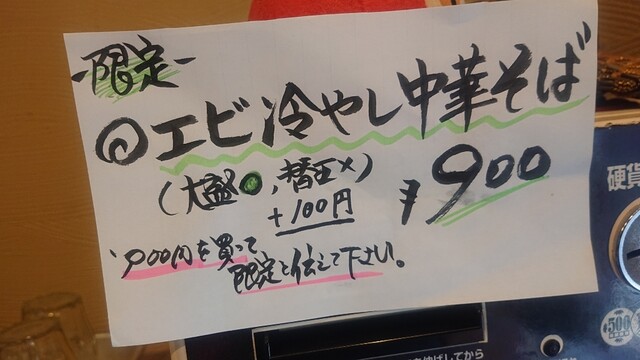 -限定-
◎エビ冷やし中華そば
(大盛●,替玉×)
+100円
¥900
900円を買って
限定と伝えて下さい。
硬貨
500